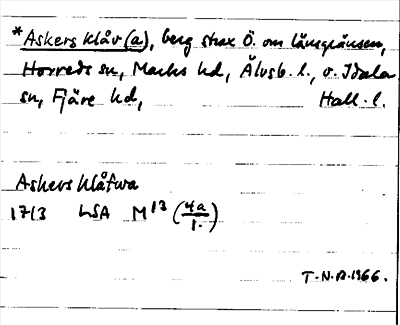 *Askers klåv (a), berg strax Ö. om länsgränsen,
Horreds sn, Marks hd, Älvsb. l., o. Idala
sn, Fjäre hd, Hall. l.
Askers klåfwa
1713 LSA M 13 (4a/1.)
T.N.R. 1966.